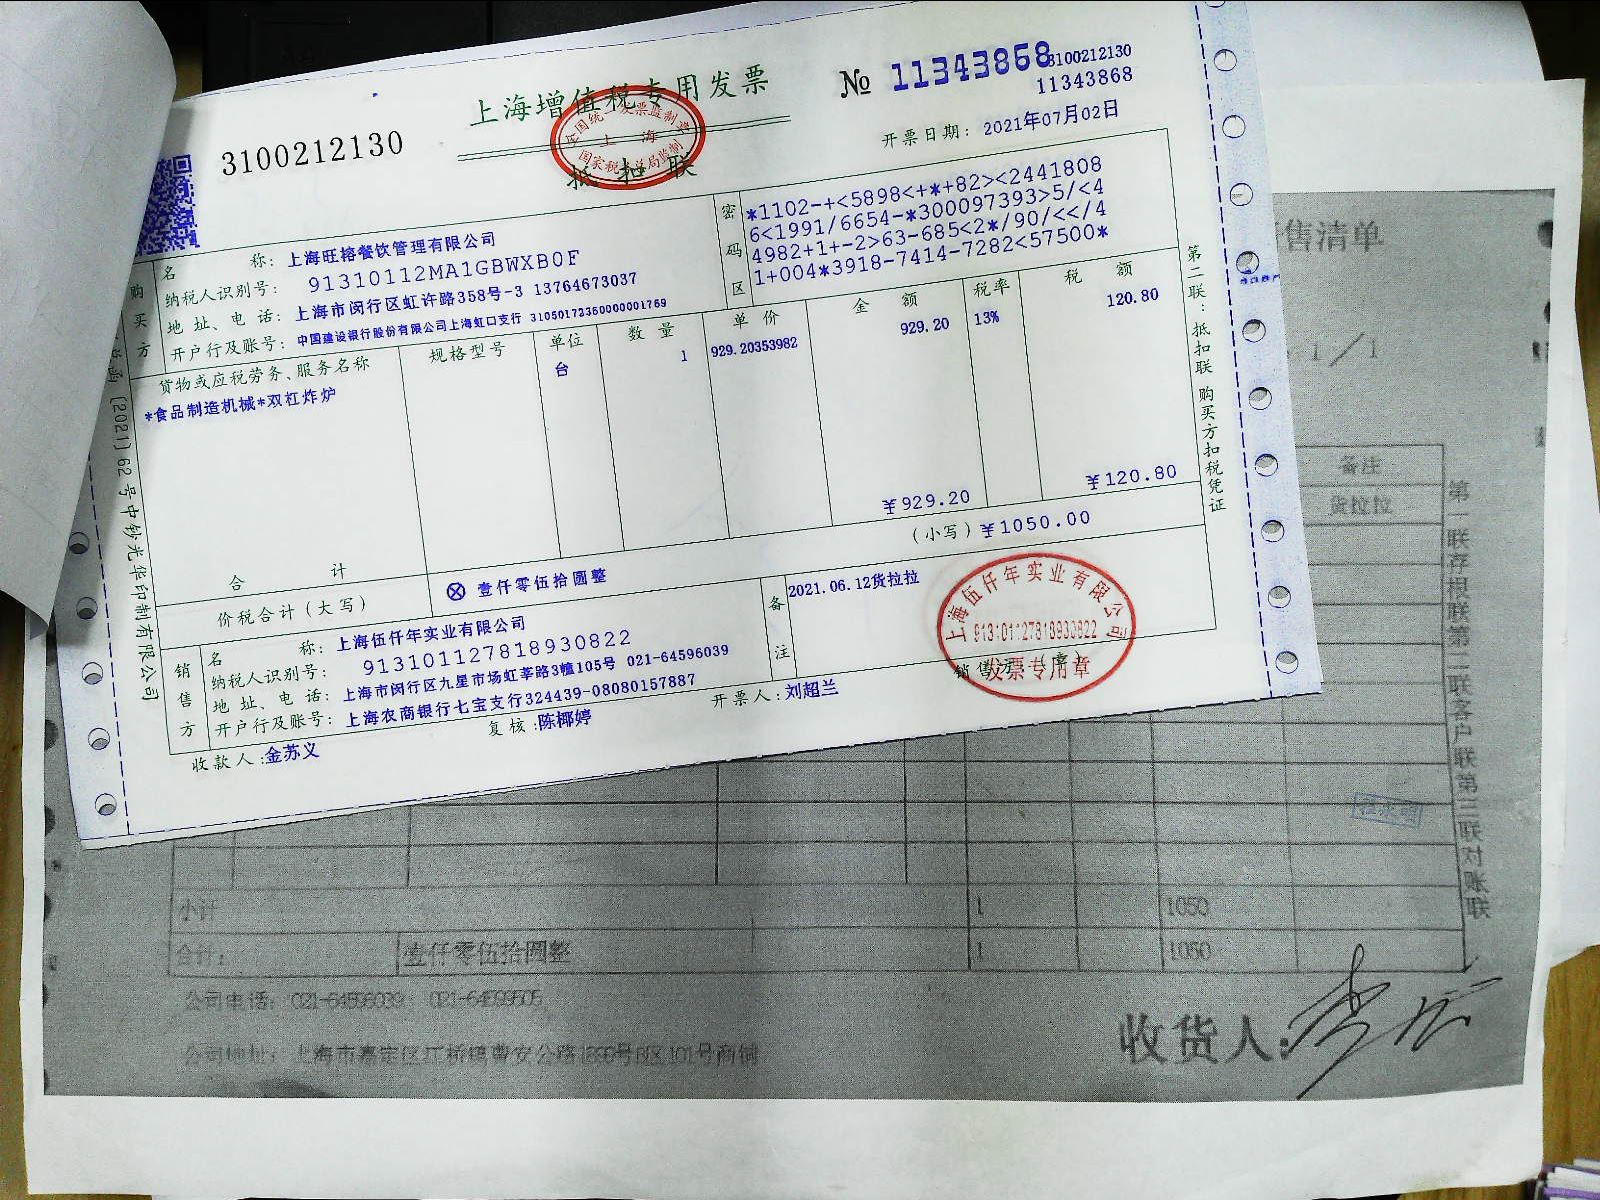 3100212130
上海增值税专用发票
全国统一发票监制章
上海
国家税务总局监制
抵扣联
№ 11343868
3100212130
11343868
开票日期：2021年07月02日
购买方
名 称：上海旺榕餐饮管理有限公司
纳税人识别号：91310112MA1GBWXB0F
地址、电话：上海市闵行区虹许路358号-3 13764673037
开户行及账号：中国建设银行股份有限公司上海虹口支行 31050172360000001769
密码区
*1102-+<5898<+*+82><2441808
6<1991/6654-*300097393>5/<4
4982+1+-2>63-685<2*/90/<</4
1+004*3918-7414-7282<57500*
货物或应税劳务、服务名称 规格型号 单位 数量 单价 金额 税率 税额
*食品制造机械*双杠炸炉 台 1 929.20353982 929.20 13% 120.80
合计 ¥929.20 ¥120.80
价税合计（大写） ⊗ 壹仟零伍拾圆整 （小写）¥1050.00
销售方
名 称：上海伍仟年实业有限公司
纳税人识别号：913101127818930822
地址、电话：上海市闵行区九星市场虹莘路3幢105号 021-64596039
开户行及账号：上海农商银行七宝支行324439-08080157887
备注
2021.06.12货拉拉
收款人：金苏义 复核：陈椰婷 开票人：刘超兰 销售方：（章）
上海伍仟年实业有限公司
913101127818930822
发票专用章
第二联：抵扣联 购买方扣税凭证
〔2021〕62号中钞光华印制有限公司
售清单
1/1
备注
货拉拉
第一联存根联第二联客户联第三联对账联
小计 1 1050
合计： 壹仟零伍拾圆整 1 1050
公司电话：021-64596039
收货人：